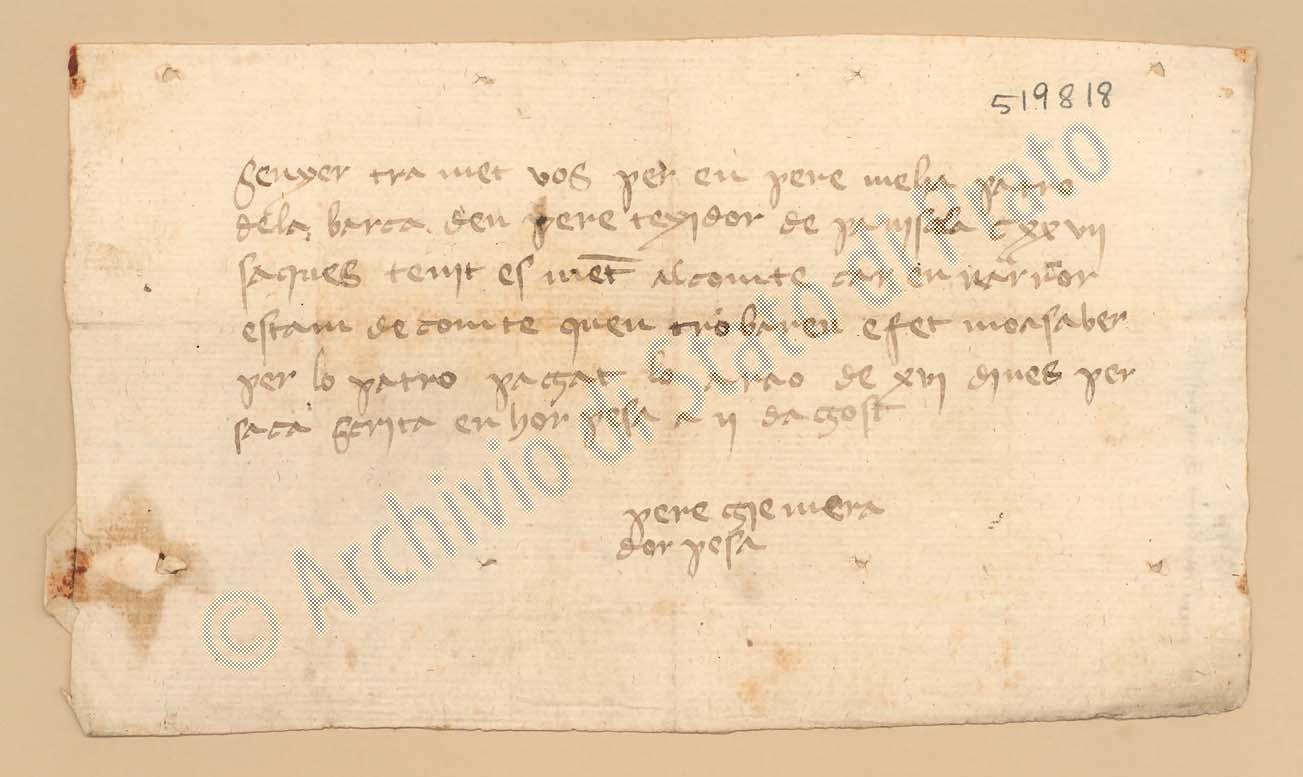 519818
senyer tra met vos per en pere melia patro
dela barca den pere texidor de paniscla cxxvii
saques tenit es ment al comte car en
estam de comte quen trobaren e fet moasaber
per lo patro pagat lo a rao de xvi dines per
saca scrita en hor pesa a ii dagost
pere giemera
dor pesa
© Archivio di Stato di Prato